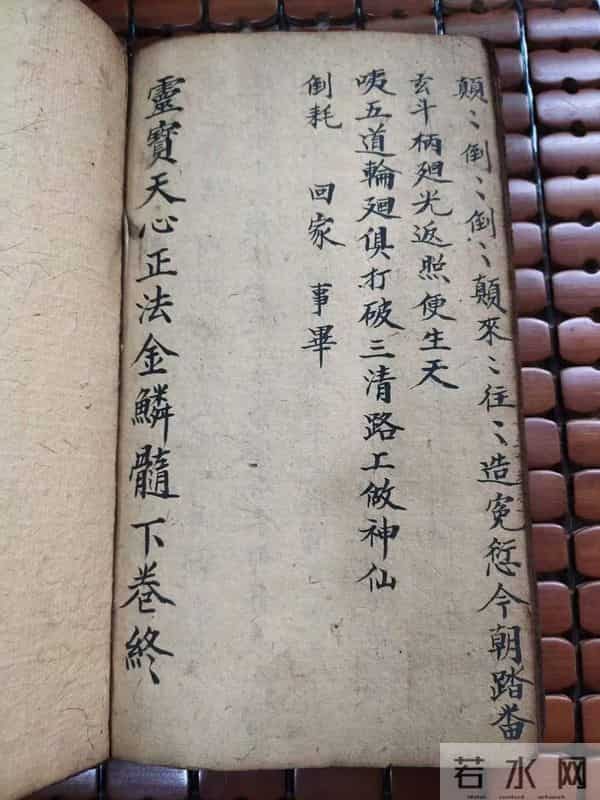 顛〻倒〻倒〻顛來〻往〻造寃愆今朝踏畨
玄斗柄廻光返照便生天
咦五道輪廻俱打破三清路上做神仙
倒耗 回家 事畢
靈寶天心正法金鱗髓下卷終
若水网